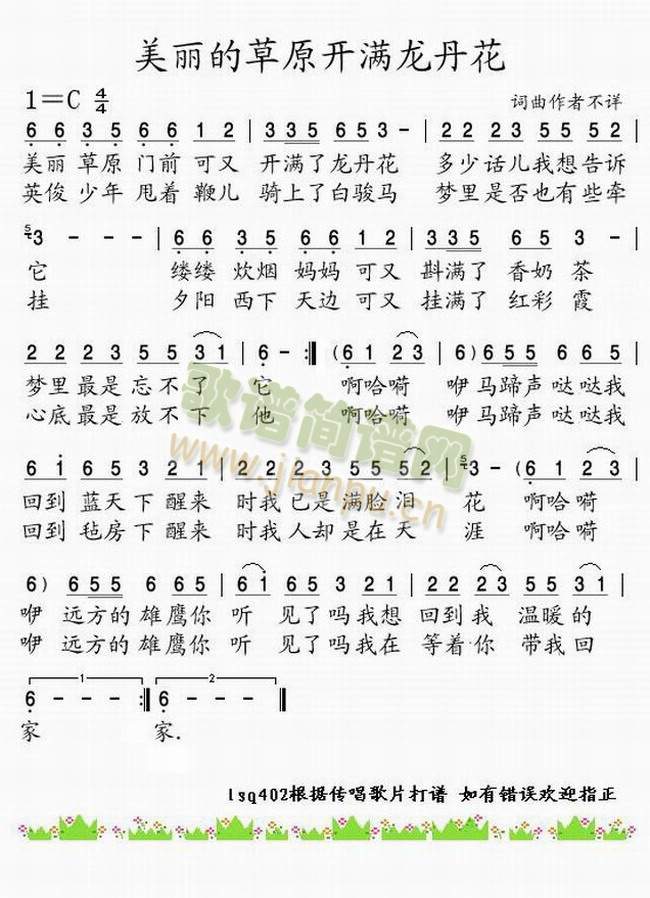 美丽的草原开满龙丹花
1=C 4/4
词曲作者不详
6 6 3 5 6 6 1 2 | 3 3 5 6 5 3 - | 2 2 2 3 5 5 5 2 |
美丽 草原 门前 可又 开满了龙丹花 多少话儿我想告诉
英俊 少年 甩着 鞭儿 骑上了白骏马 梦里是否也有些牵
5 3 - - - | 6 6 3 5 6 6 1 2 | 3 3 5 6 5 3 - |
它 缕缕 炊烟 妈妈 可又 斟满了 香奶茶
挂 夕阳 西下 天边 可又 挂满了 红彩霞
2 2 2 3 5 5 3 1 | 6 - :‖ (6 1 2 3 | 6) 6 5 5 6 6 5 |
梦里最是忘不了 它 啊哈嗬 咿马蹄声哒哒我
心底最是放不下 他 啊哈嗬 咿马蹄声哒哒我
歌谱简谱网
www.jianpu.cn
6 i 6 5 3 2 1 | 2 2 2 3 5 5 5 2 | 5 3 - (6 1 2 3 |
回到 蓝天下醒来 时我已是满脸泪 花 啊哈嗬
回到 毡房下醒来 时我人却是在天 涯 啊哈嗬
6) 6 5 5 6 6 5 | 6 1 6 5 3 2 1 | 2 2 2 3 5 5 3 1 |
咿 远方的雄鹰你 听 见了吗我想 回到我 温暖的
咿 远方的雄鹰你 听 见了吗我在 等着你 带我回
1 2
6 - - - :‖ 6 - - - ‖
家 家.
lsq402根据传唱歌片打谱 如有错误欢迎指正